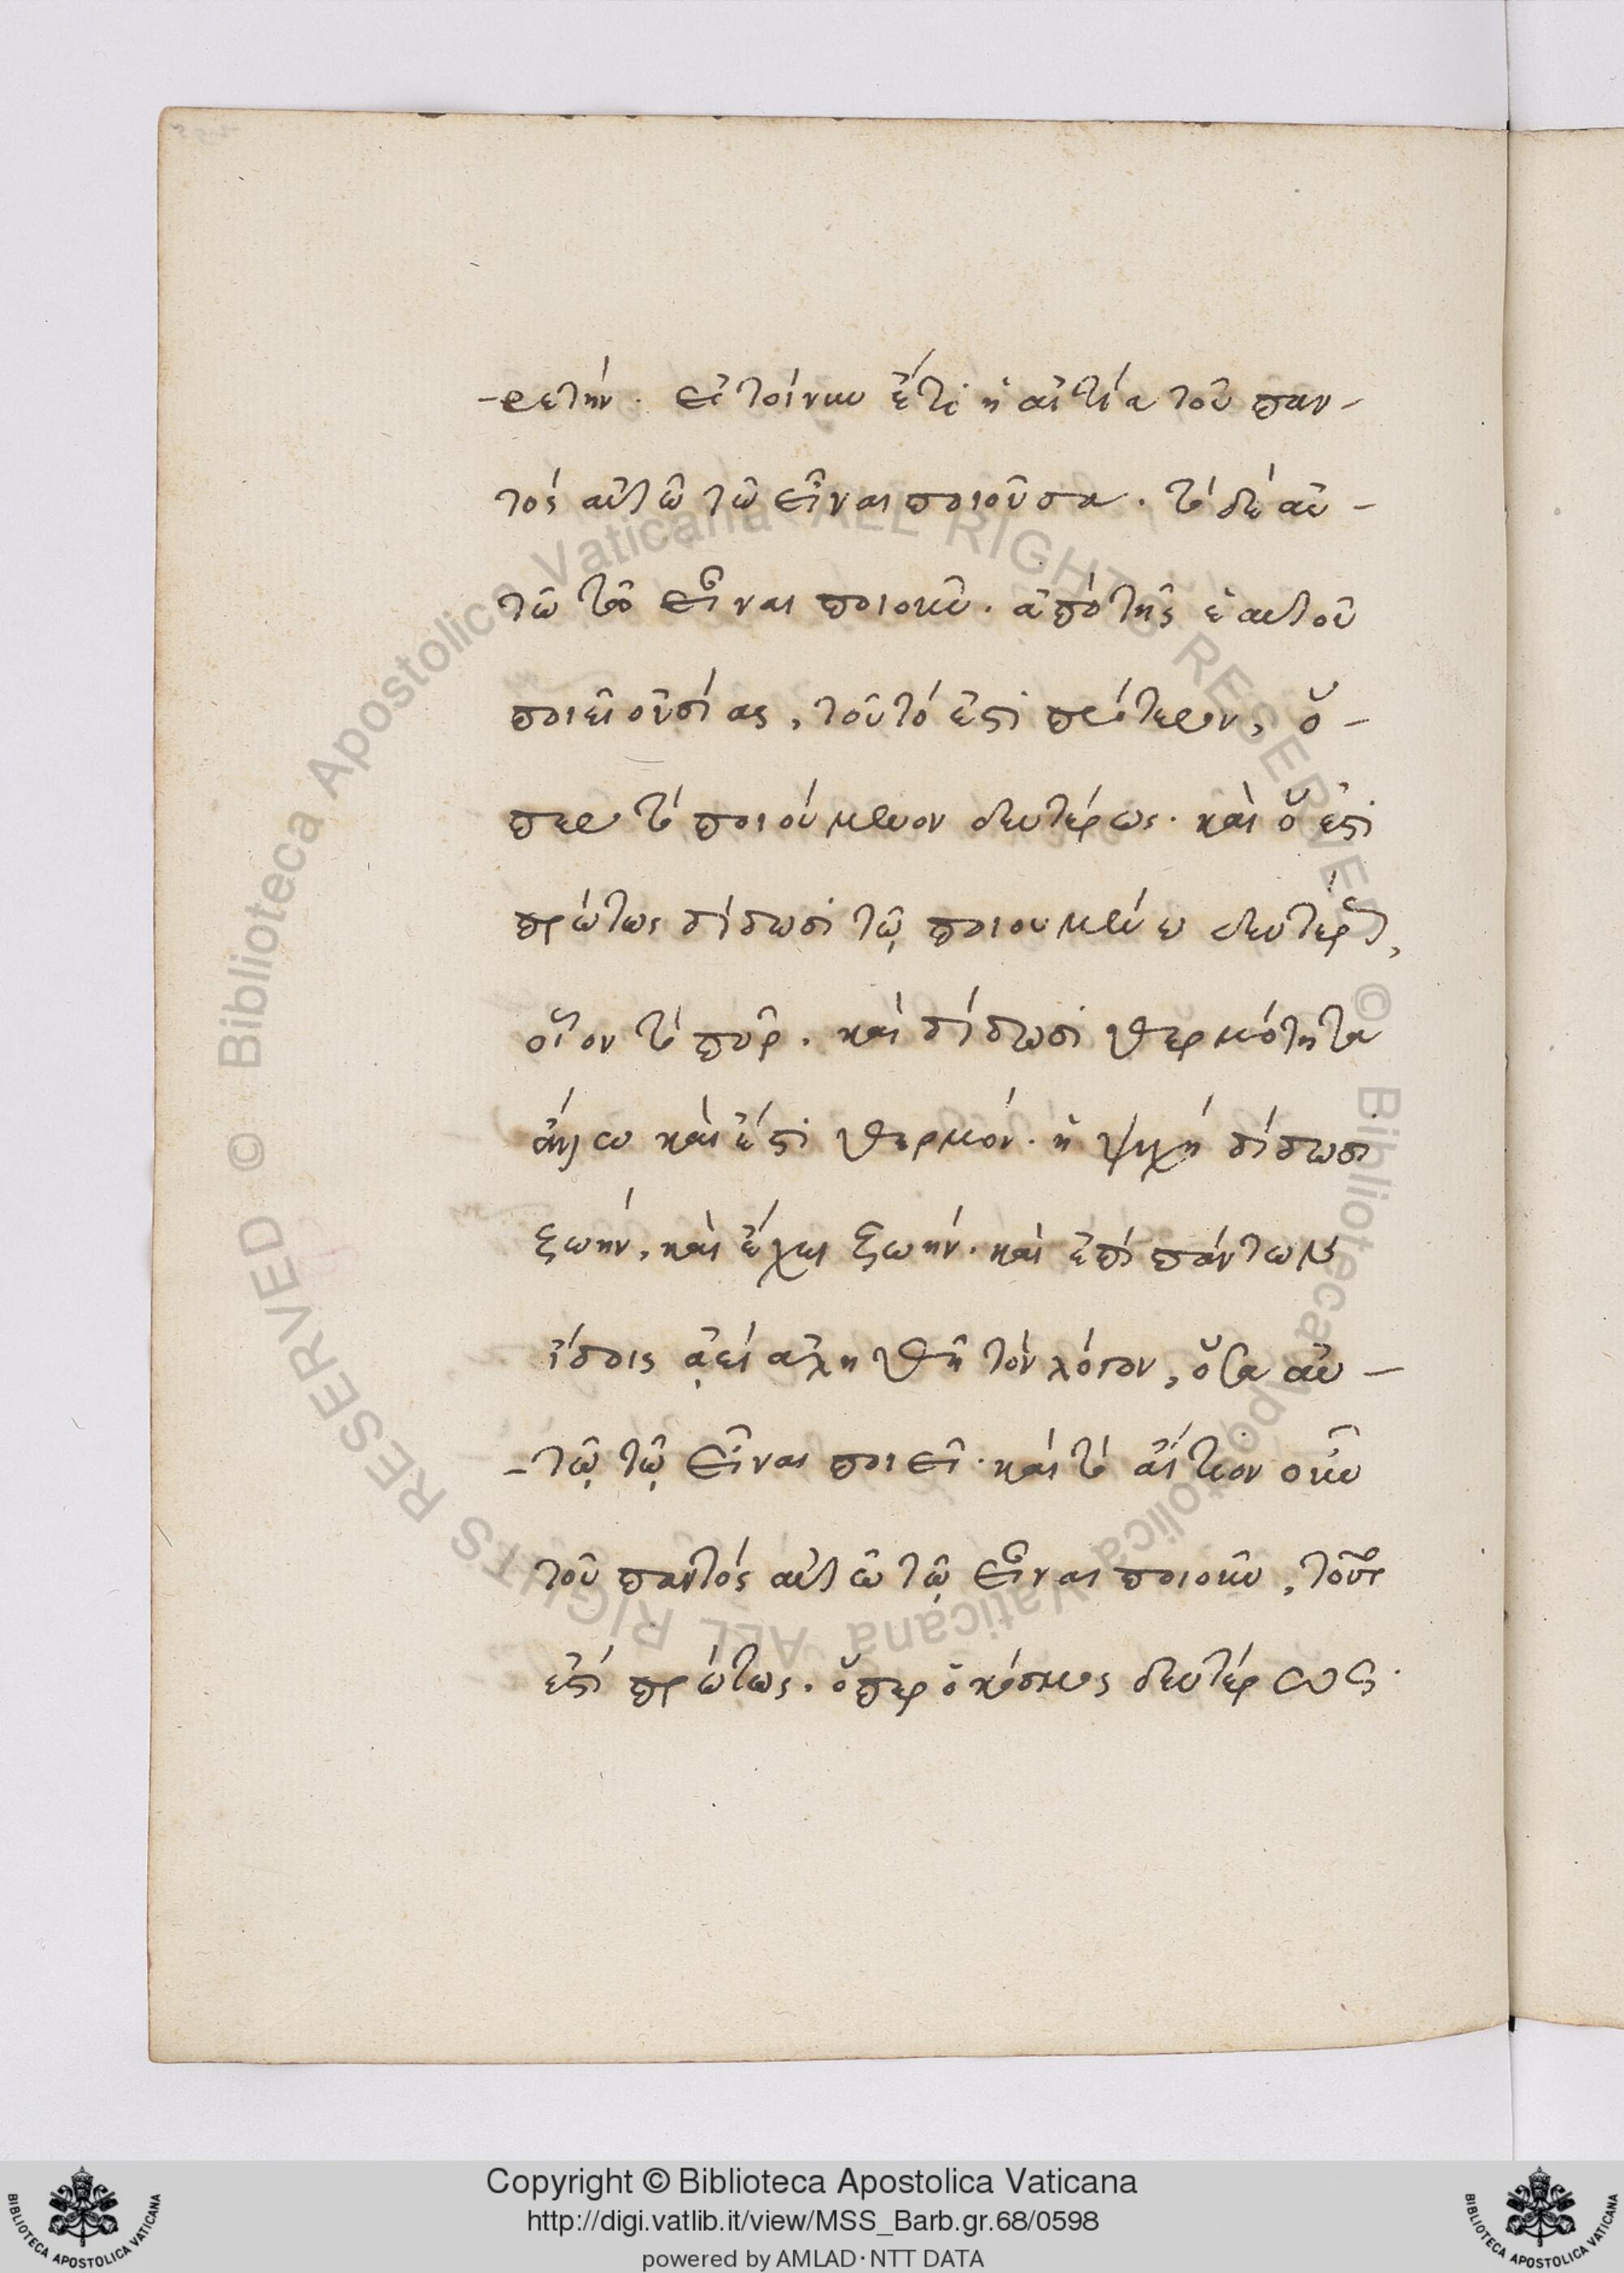 -ρετήν. εἰ τοίνυν ἔτι ἡ αἰτία τοῦ παν-
τός αὐτῶ τῶ εἶναι ποιοῦσα. τό δέ αὐ-
τῶ τῶ εἶναι ποιοῦν. ἀπό τῆς ἑαυτοῦ
ποιεῖ οὐσίας, τοῦτό ἐστι πρότερον, ὅ-
περ τό ποιούμενον δευτέρως. καὶ ὅ ἐστι
πρώτως δίδωσι τῷ ποιουμένω δευτέρως,
οἷον τό πῦρ. καί δίδωσι θερμότητα
ἄλλω καὶ ἔστι θερμόν. ἡ ψυχή δίδωσι
ζωήν, καὶ ἔχει ζωήν. καὶ ἐπί πάντων
ἴδοις ἀεί ἀληθῆ τὸν λόγον, ὅσα αὐ-
-τῷ τῷ εἶναι ποιεῖ. καί τό αἴτιον οὖν
τοῦ παντός αὐτῶ τῷ εἶναι ποιοῦν, τοῦτο
ἐστί πρώτως. ὅπερ ὁ κόσμος δευτέρως.
Copyright © Biblioteca Apostolica Vaticana
http://digi.vatlib.it/view/MSS_Barb.gr.68/0598
powered by AMLAD·NTT DATA
BIBLIOTECA APOSTOLICA VATICANA
BIBLIOTECA APOSTOLICA VATICANA
© Biblioteca Apostolica Vaticana ALL RIGHTS RESERVED © Biblioteca Apostolica Vaticana ALL RIGHTS RESERVED